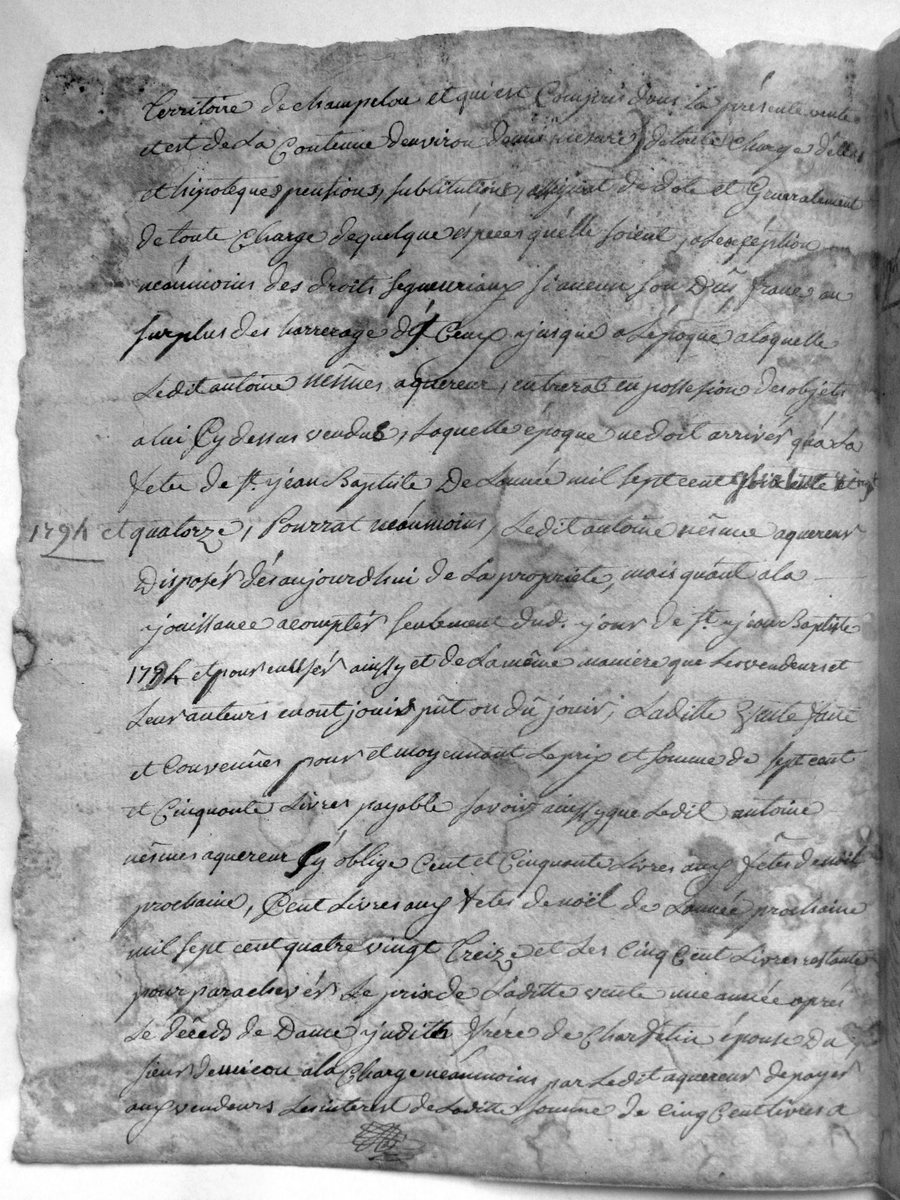 territoire de champelou et qui est Compris dans la présente vente
et est de La Contenue denviron demie mesure) de toute Charge dettes
et hipoteques, pensions, substitutions, assignat de dote et Generalement
de toute Charge de quelque éspéces qu'elle soient, a l'exeption
néanmoins des droits segneuriaux si aucun son Dûs franc au
surplus des harrerage d'y Ceux ajusque a Lepoque a laquelle
Ledit antoine nesmes aquereur, entrera en possession des objets
a lui Cy dessus vendus, Laquelle époque ne doit arrivér qu'a La
fete de st. jean Baptiste De Lannée mil sept cent
1794 et quatorze, Pourrat néanmoins, Ledit antoine nêsme aquereur
Disposér dés aujourdhui de La propriete, mais quant a la
jouissance a comptér seulement dud. jour de st. jean Baptiste
1794 et pour en usér ainssy et de La même maniere que Les vendeurs et
Leur auteurs en ont jouis pût ou dû jouir; Laditte vente faite
et Convenûes pour et moyennant Le prix et somme de sept cent
et Cinquante Livres payable savoir ainssy que Ledit antoine
nêsmes aquereur s'y oblige Cent et Cinquante Livres aux fêtes de noël
prochaine, Cent Livres aux fetes de noël de Lannée prochaine
mil sept cent quatre vingt treize et Les Cinq Cent Livres restante
pour parachevér Le prix de Laditte vente une année aprés
Le décéds de Dame judith frére de Chardelin épouse Du
sieur demicou a la Charge néanmoins par Ledit aquereur de payer
aux vendeurs Les interest de Laditte somme de Cinq Cent livres a